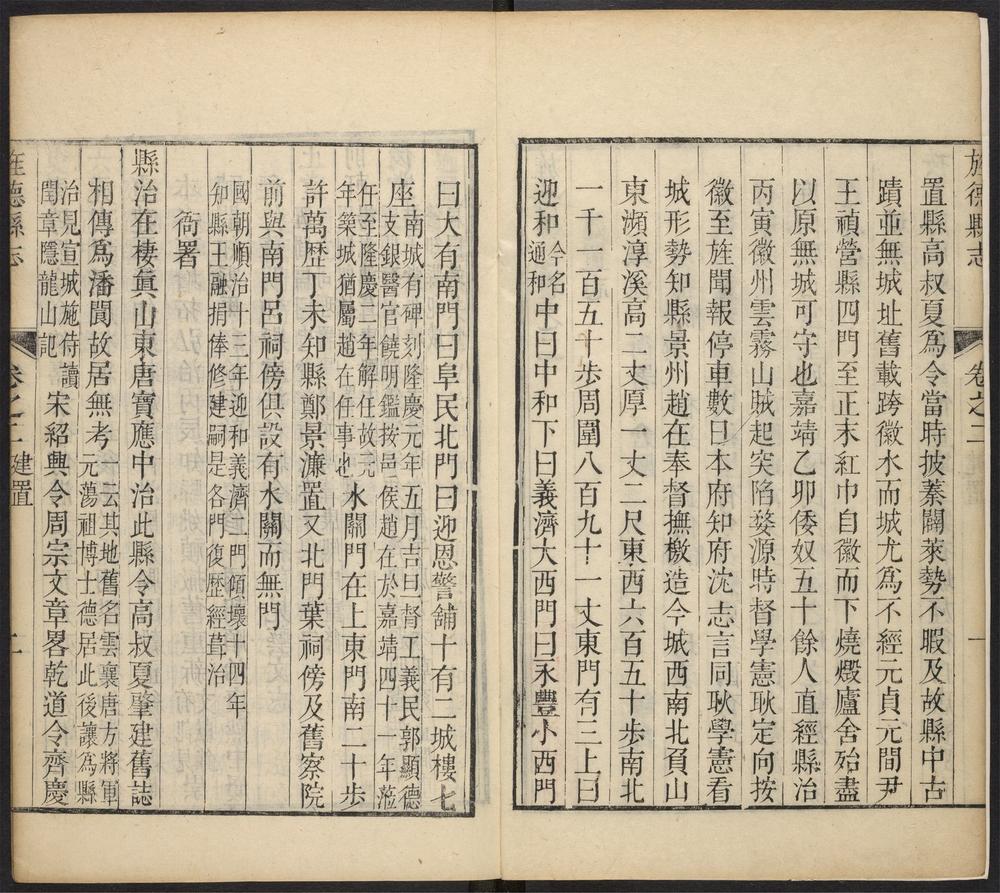 旌德縣志
卷之二
一
置縣高叔夏爲令當時披蓁闢萊勢不暇及故縣中古
蹟並無城址舊載跨徽水而城尤爲不經元貞元間尹
王禎營縣四門至正末紅巾自徽而下燒燬廬舍殆盡
以原無城可守也嘉靖乙卯倭奴五十餘人直經縣治
丙寅徽州雲霧山賊起突陷婺源時督學憲耿定向按
徽至旌聞報停車數日本府知府沈志言同耿學憲看
城形勢知縣景州趙在奉督撫檄造今城西南北負山
東瀕淳溪高二丈厚一丈二尺東西六百五十步南北
一千一百五十步周圍八百九十一丈東門有三上曰
迎和今名通和中曰中和下曰義濟大西門曰永豐小西門
曰大有南門曰阜民北門曰迎恩警舖十有二城樓七
座南城有碑刻隆慶元年五月吉日督工義民郭顯德支銀醫官饒明鑑按邑侯趙在於嘉靖四十一年蒞任至隆慶二年解任故元年築城猶屬趙在任事也水關門在上東門南二十步
許萬歷丁未知縣鄭景濂置又北門葉祠傍及舊察院
前與南門呂祠傍俱設有水關而無門
國朝順治十三年迎和義濟二門傾壞十四年知縣王融捐俸修建嗣是各門復歷經葺治
衙署
縣治在棲眞山東唐寶應中治此縣令高叔夏肇建舊誌
相傳爲潘閬故居無考一云其地舊名雲襄唐方將軍元蕩祖博士德居此後讓爲縣治見宣城施侍讀閏章隱龍山記宋紹興令周宗文章畧乾道令齊慶
旌德縣志
卷之二 建置
二